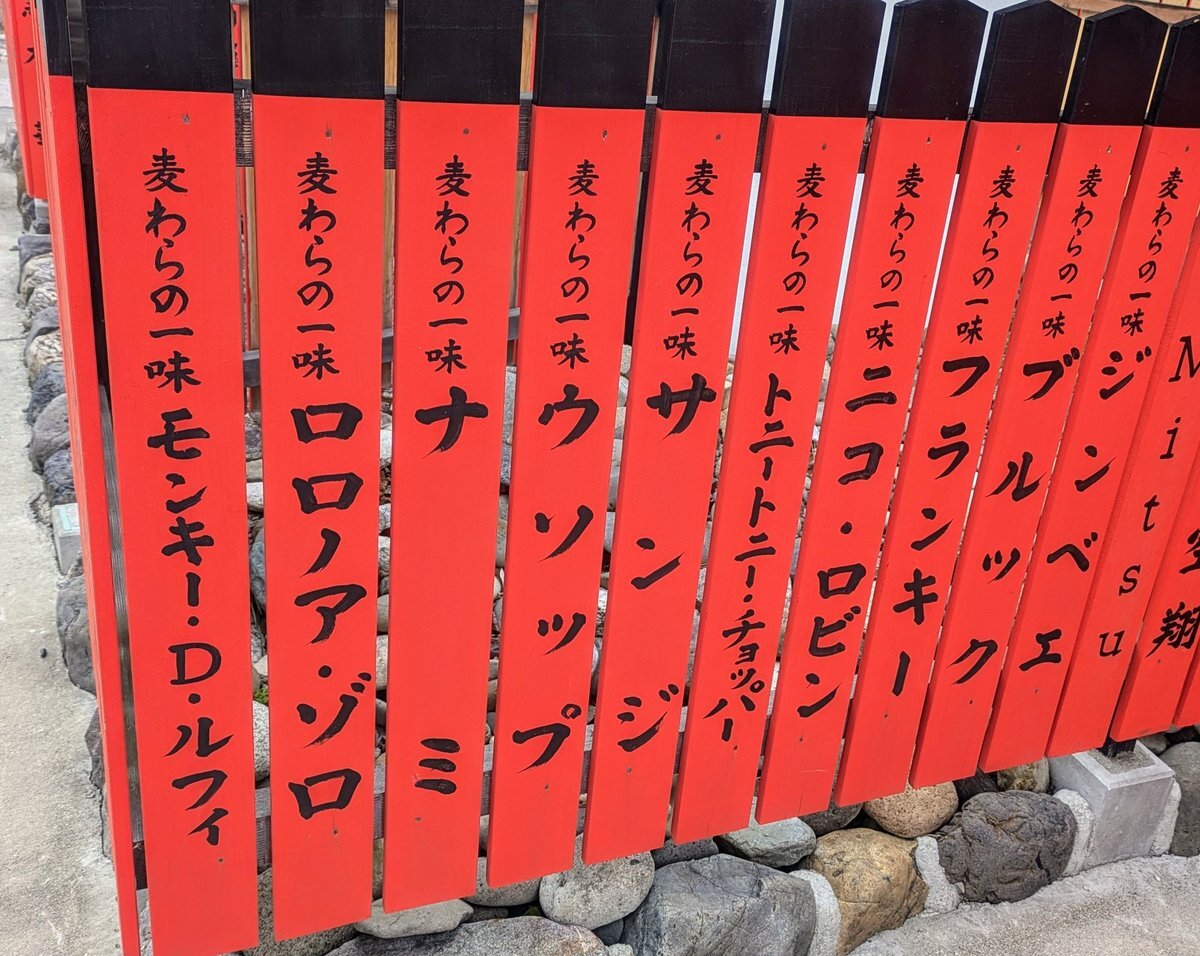 麦わらの一味 モンキー・D・ルフィ
麦わらの一味 ロロノア・ゾロ
麦わらの一味 ナミ
麦わらの一味 ウソップ
麦わらの一味 サンジ
麦わらの一味 トニートニー・チョッパー
麦わらの一味 ニコ・ロビン
麦わらの一味 フランキー
麦わらの一味 ブルック
麦わらの一味 ジンベエ
Mitsu
翔